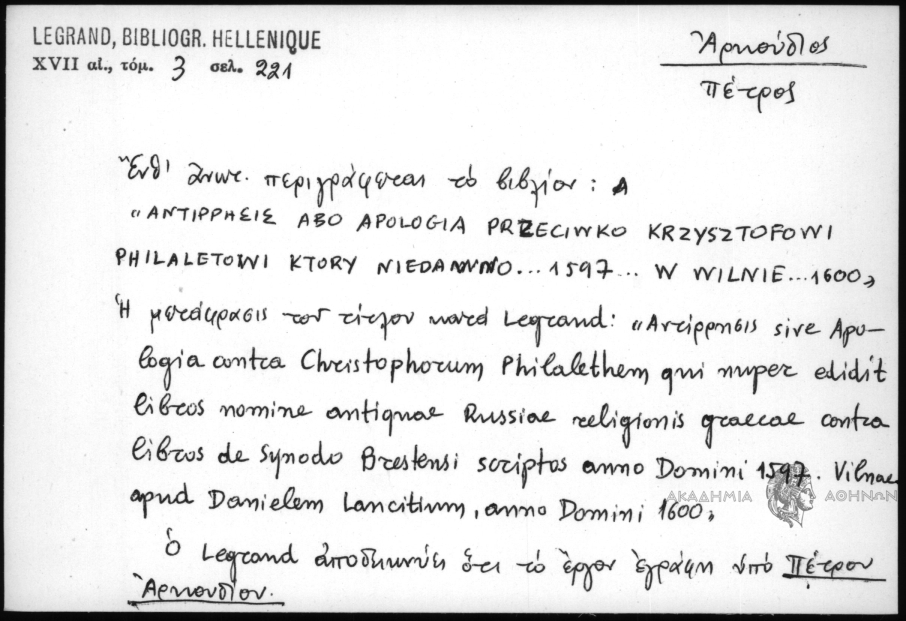 LEGRAND, BIBLIOGR. HELLENIQUE
XVII αἰ., τόμ. 3 σελ. 221
Ἀρκούδιος
Πέτρος
Ἔνθ' ἀνωτ. περιγράφεται τὸ βιβλίον:
"ΑΝΤΙΡΡΗΣΙΣ ABO APOLOGIA PRZECIWKO KRZYSZTOFOWI
PHILALETOWI KTORY NIEDAWNO...1597... W WILNIE...1600"
Ἡ μετάφρασις τοῦ τίτλου κατὰ Legrand: "Αντίρρησις sive Apo-
logia contra Christophorum Philalethem qui nuper edidit
libros nomine antiquae Russiae religionis graecae contra
libros de Synodo Brestensi scriptos anno Domini 1597. Vilnae
apud Danielem Lancitium, anno Domini 1600"
ΑΚΑΔΗΜΙΑ ΑΘΗΝΩΝ
Ὁ Legrand ἀποδεικνύει ὅτι τὸ ἔργον ἐγράφη ὑπὸ Πέτρου
Ἀρκουδίου.